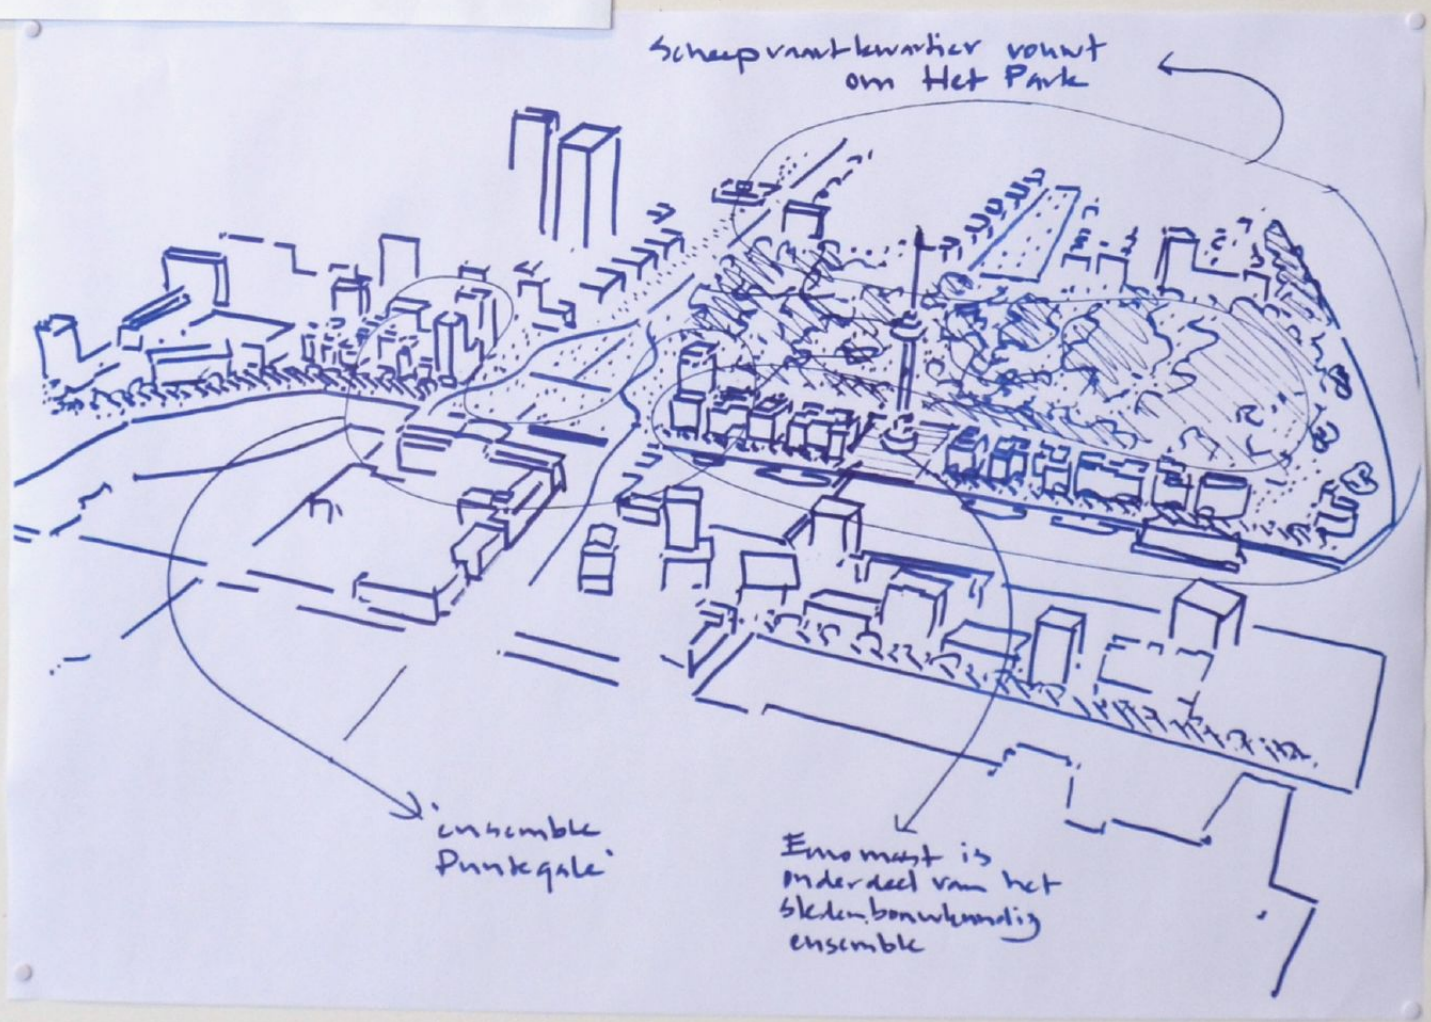 Scheepvaartkwartier vouwt
om Het Park
'ensemble
Puntegale'
Euromast is
onderdeel van het
stedenbouwkundig
ensemble